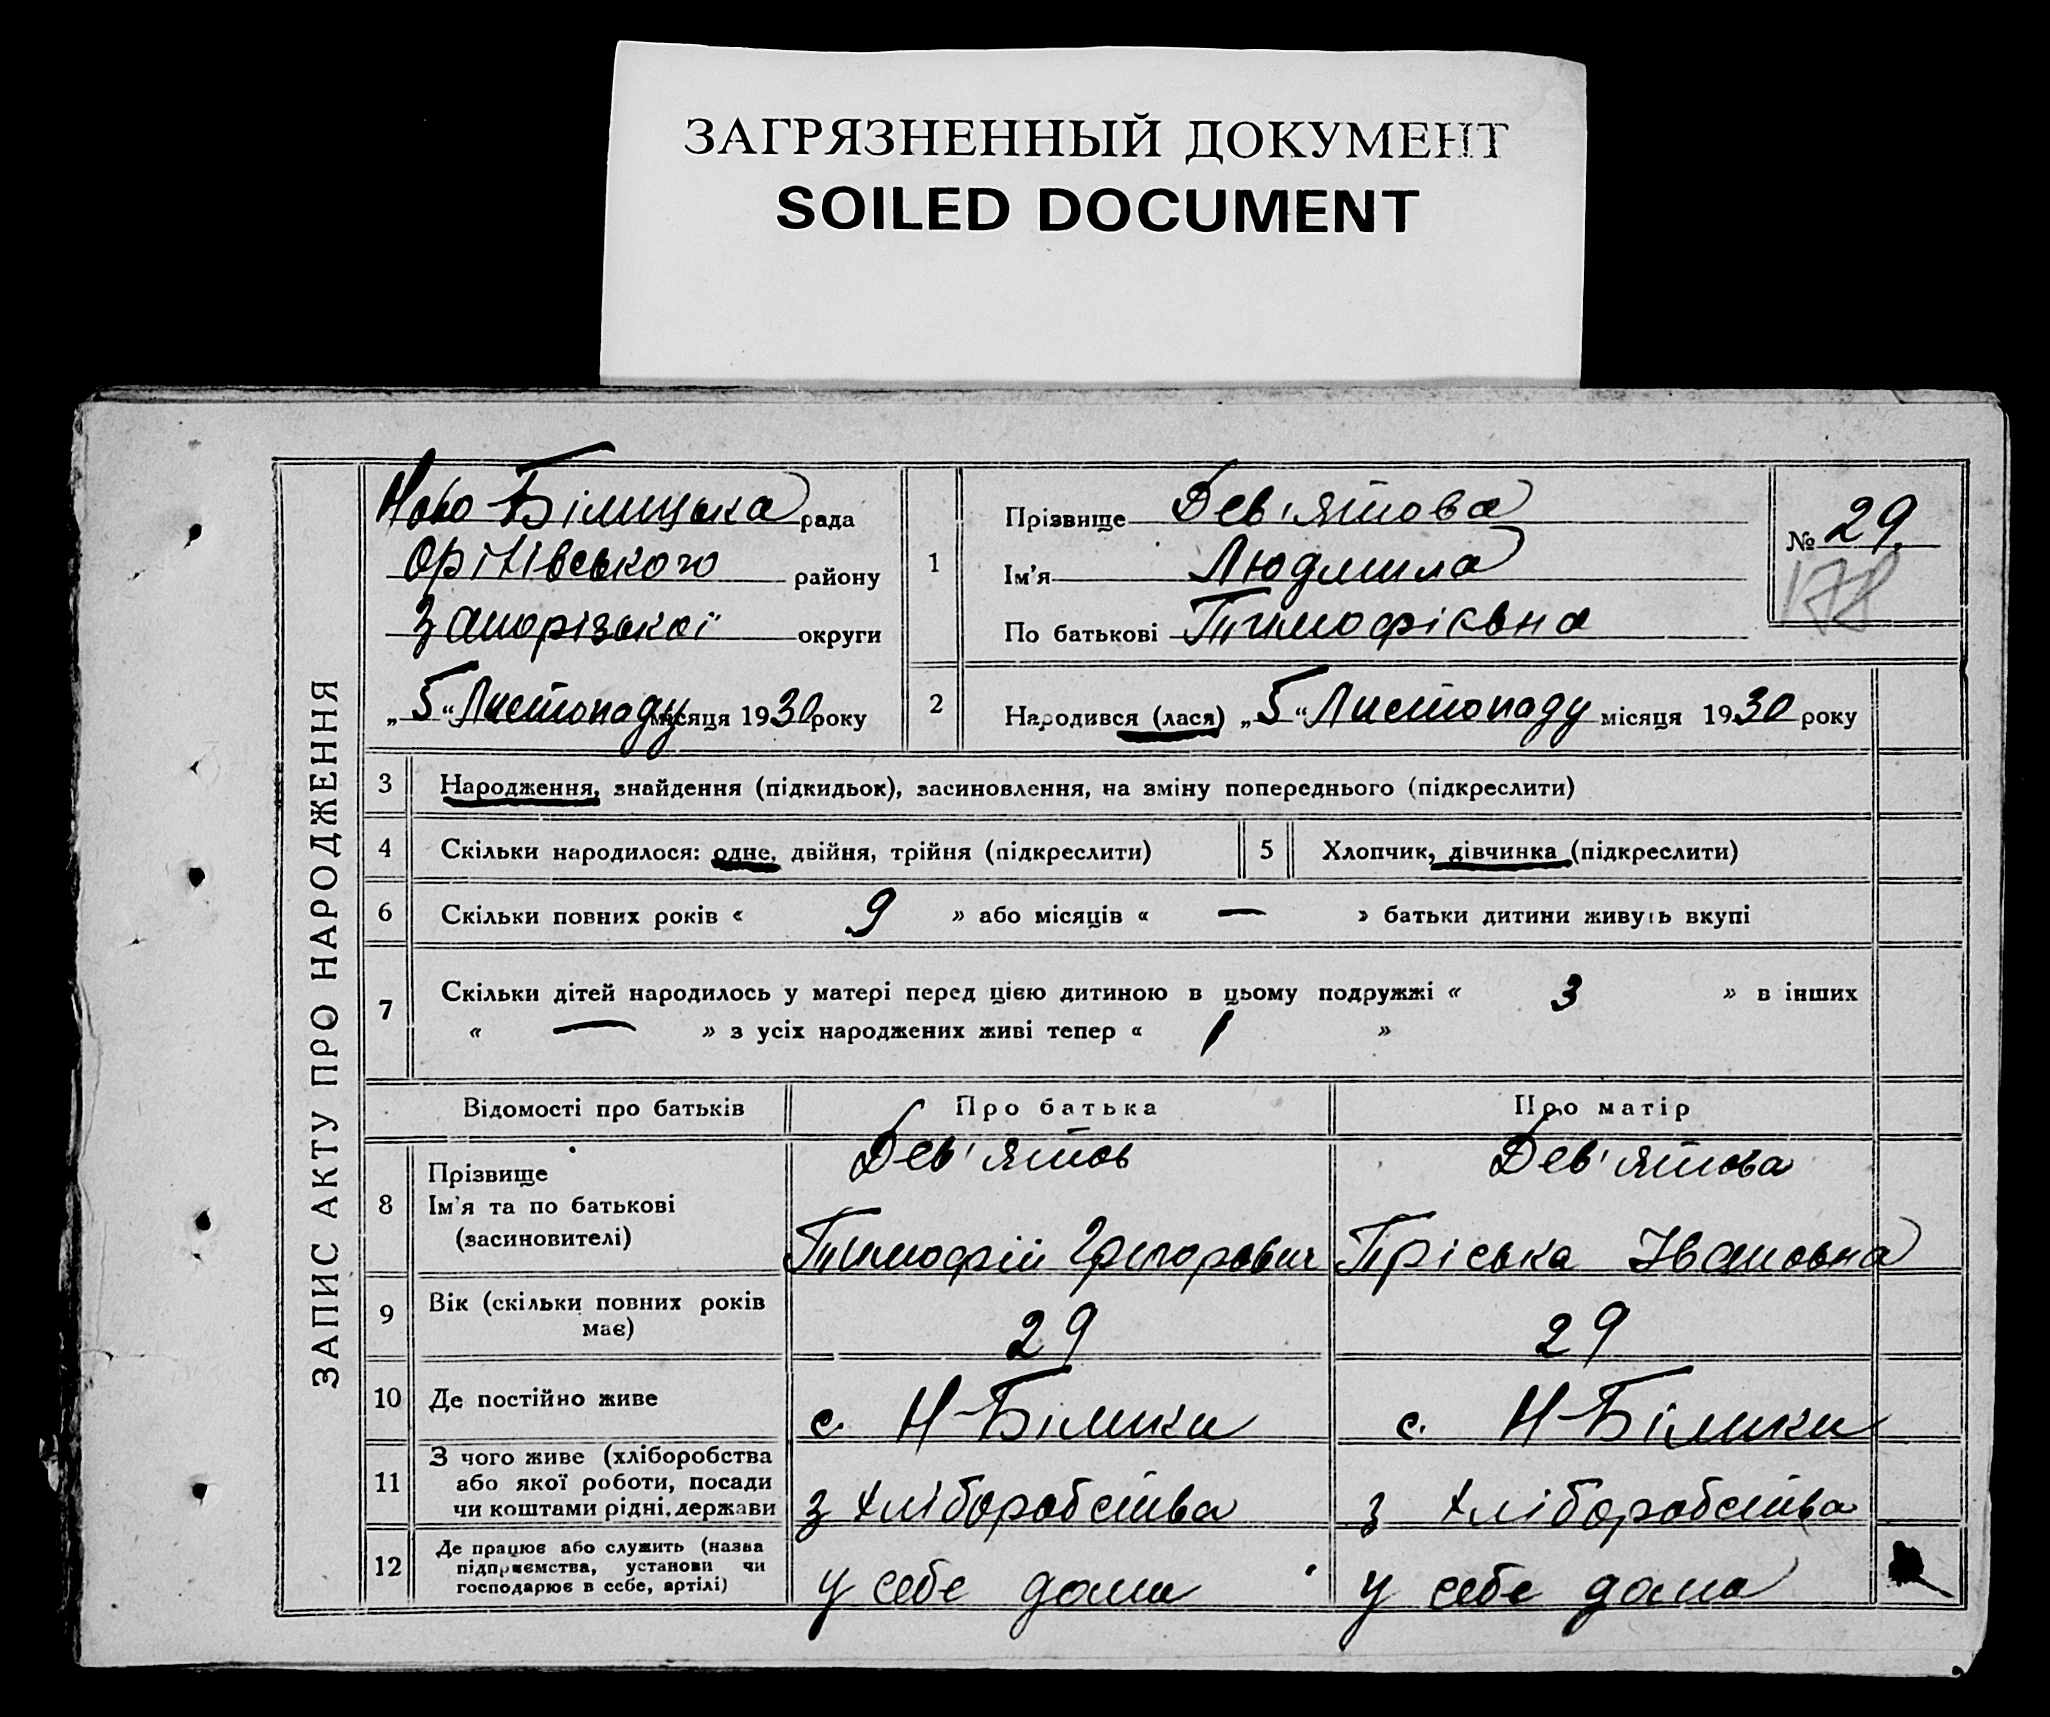 ЗАГРЯЗНЕННЫЙ ДОКУМЕНТ
SOILED DOCUMENT
ЗАПИС АКТУ ПРО НАРОДЖЕННЯ
Ново Білицька рада
Оріхівського району
Запорізької округи
„5“ Листопаду місяця 1930 року
1
Прізвище Дев'ятова
Ім'я Людмила
По батькові Тимофієвна
№ 29
178
2 Народився (лася) „5“ Листопаду місяця 1930 року
3 Народження, знайдення (підкидьок), засиновлення, на зміну попереднього (підкреслити)
4 Скільки народилося: одне, двійня, трійня (підкреслити)
5 Хлопчик, дівчинка (підкреслити)
6 Скільки повних років « 9 » або місяців « — » батьки дитини живуть вкупі
7 Скільки дітей народилось у матері перед цією дитиною в цьому подружжі « 3 » в інших
« — » з усіх народжених живі тепер « 1 »
Відомості про батьків Про батька Про матір
8 Прізвище Дев'ятов Дев'ятова
Ім'я та по батькові
(засиновителі) Тимофій Григорович Пріська Івановна
9 Вік (скільки повних років
має) 29 29
10 Де постійно живе с. Н-Білики с. Н-Білики
11 З чого живе (хліборобства
або якої роботи, посади
чи коштами рідні, держави з хліборобства з хліборобства
12 Де працює або служить (назва
підприємства, установи чи
господарює в себе, артілі) у себе дома у себе дома